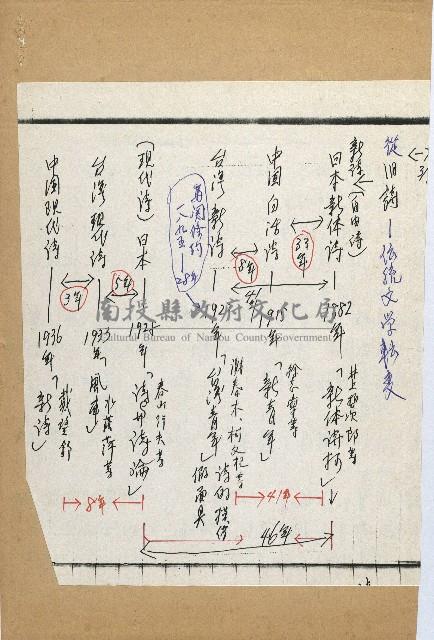 從旧詩—伝統文学転変
新詩（自由詩）
日本新体詩—1882年「新体詩抄」井上哲次郎等
33年
中国白話詩—1915年「新青年」
8年
41
台湾新詩—192 年「台湾青年」
詩的模仿
仮面具
馬関條約
一八九五—28年
（現代詩）日本—1928年「詩与詩論」春山行夫等
5年
台湾現代詩—1933年「風車」水蔭萍等
3年
中国現代詩—1936年「新詩」戴望舒
8年
41年
46年
南投縣政府文化局
Cultural Bureau of Nantou County Government